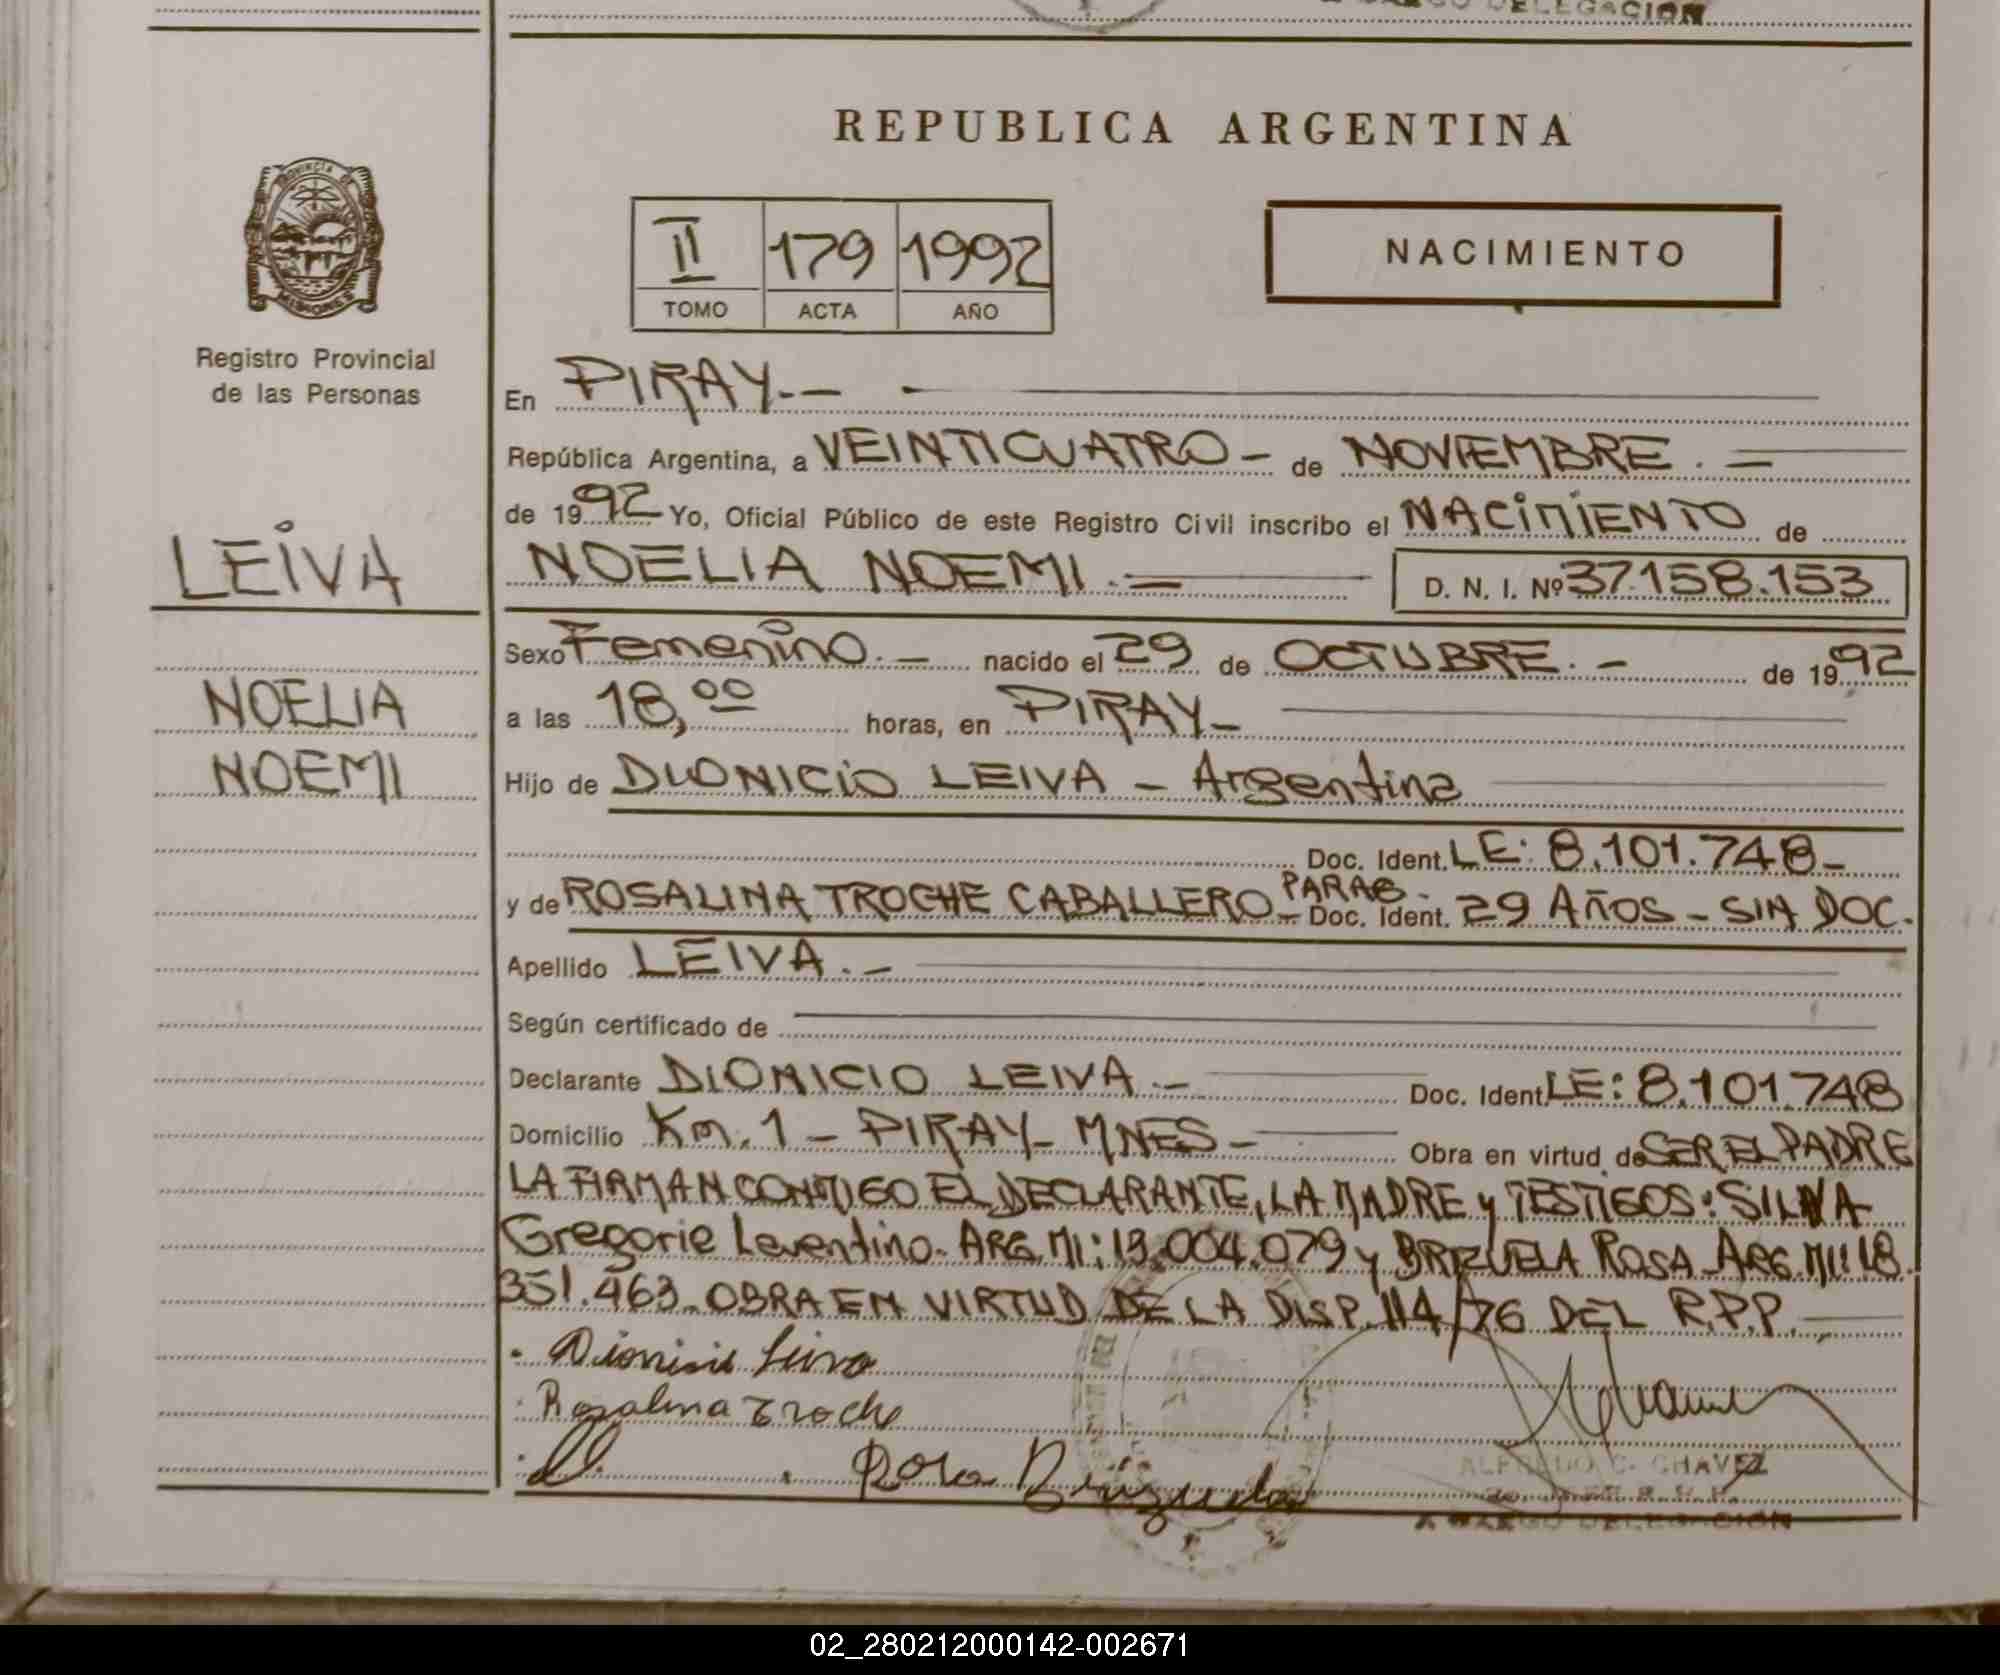 A CARGO DELEGACION
REPUBLICA ARGENTINA
PROVINCIA DE
MISIONES
II 179 1992
TOMO ACTA AÑO
NACIMIENTO
Registro Provincial
de las Personas
En PIRAY.-
República Argentina, a VEINTICUATRO - de NOVIEMBRE. -
de 1992 Yo, Oficial Público de este Registro Civil inscribo el NACIMIENTO de
LEIVA
NOELIA NOEMI. = D. N. I. Nº 37.158.153
Sexo Femenino. - nacido el 29 de OCTUBRE. - de 1992
NOELIA
a las 18,00 horas, en PIRAY -
NOEMI
Hijo de DIONICIO LEIVA - Argentina
Doc. Ident. LE: 8.101.748-
y de ROSALINA TROCHE CABALLERO - PARAG - Doc. Ident. 29 AÑOS - SIN DOC.
Apellido LEIVA. -
Según certificado de
Declarante DIONICIO LEIVA. - Doc. Ident. LE: 8.101.748
Domicilio Km. 1 - PIRAY - MNES - Obra en virtud de SER EL PADRE
LA FIRMAN CONMIGO EL DECLARANTE, LA MADRE y TESTIGOS: SILVA
Gregorie Leventino. ARG. MI: 13.004.079 y BRIZUELA ROSA. ARG. MI: 18.
351.463. OBRA EN VIRTUD DE LA DISP. 114/76 DEL R.P.P.
Dionisio Leiva
Rosalina Troche
Rosa Brizuela
ALFREDO C. CHAVEZ
A CARGO DELEGACION
02_280212000142-002671